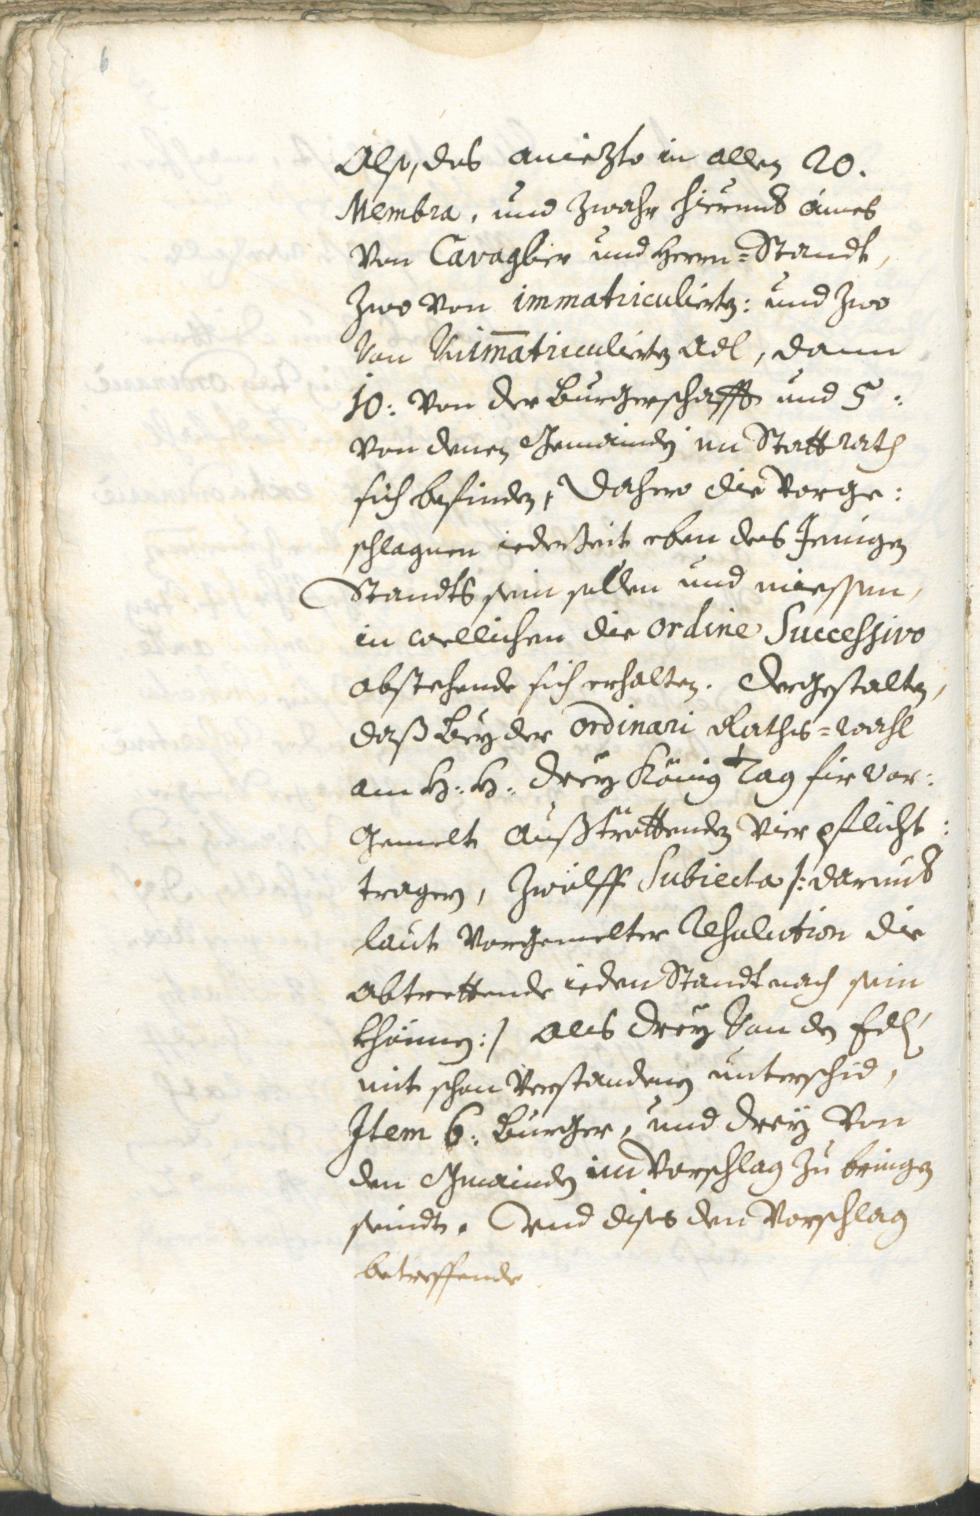 6
Also, das aniezto in allen 20.
Membra, und zwahr hieruns aines
von Cavaglier und Herrn-Standt,
Zwo von immatriculierten: und zwo
Von Unim̅atriculierten Adl, dann
10: von der Burgerschafft und 5:
von denen Gemainden im Stattrath
sich befinden, Dahero die vorge:
schlagnen iederzeit eben des Jenigen
Standts sein sollen und miessen,
in wellichen die ordine Successivo
abstehende sich erhalten. Dergestalten,
daß bey der ordinari Raths-wahl
am H: H: drey König Tag für vor:
gemelte außtrettenden Vier pflicht:
tragern, Zwölff Subiecta /: darunder
laut vorgemelter Resolution die
abtrettende ieden Standt nach sein
khönnen:/ als drey Von den Edl
mit schon verstandenen unterschid,
Item 6: Burger, und drey von
den Gmainden in Vorschlag zu bringen
seindt. Und dises den Vorschlag
betreffende